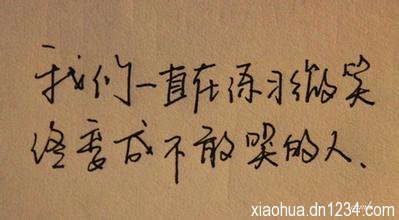 我们一直在练习微笑
终变成不敢哭的人、
xiaohua.dn1234.com